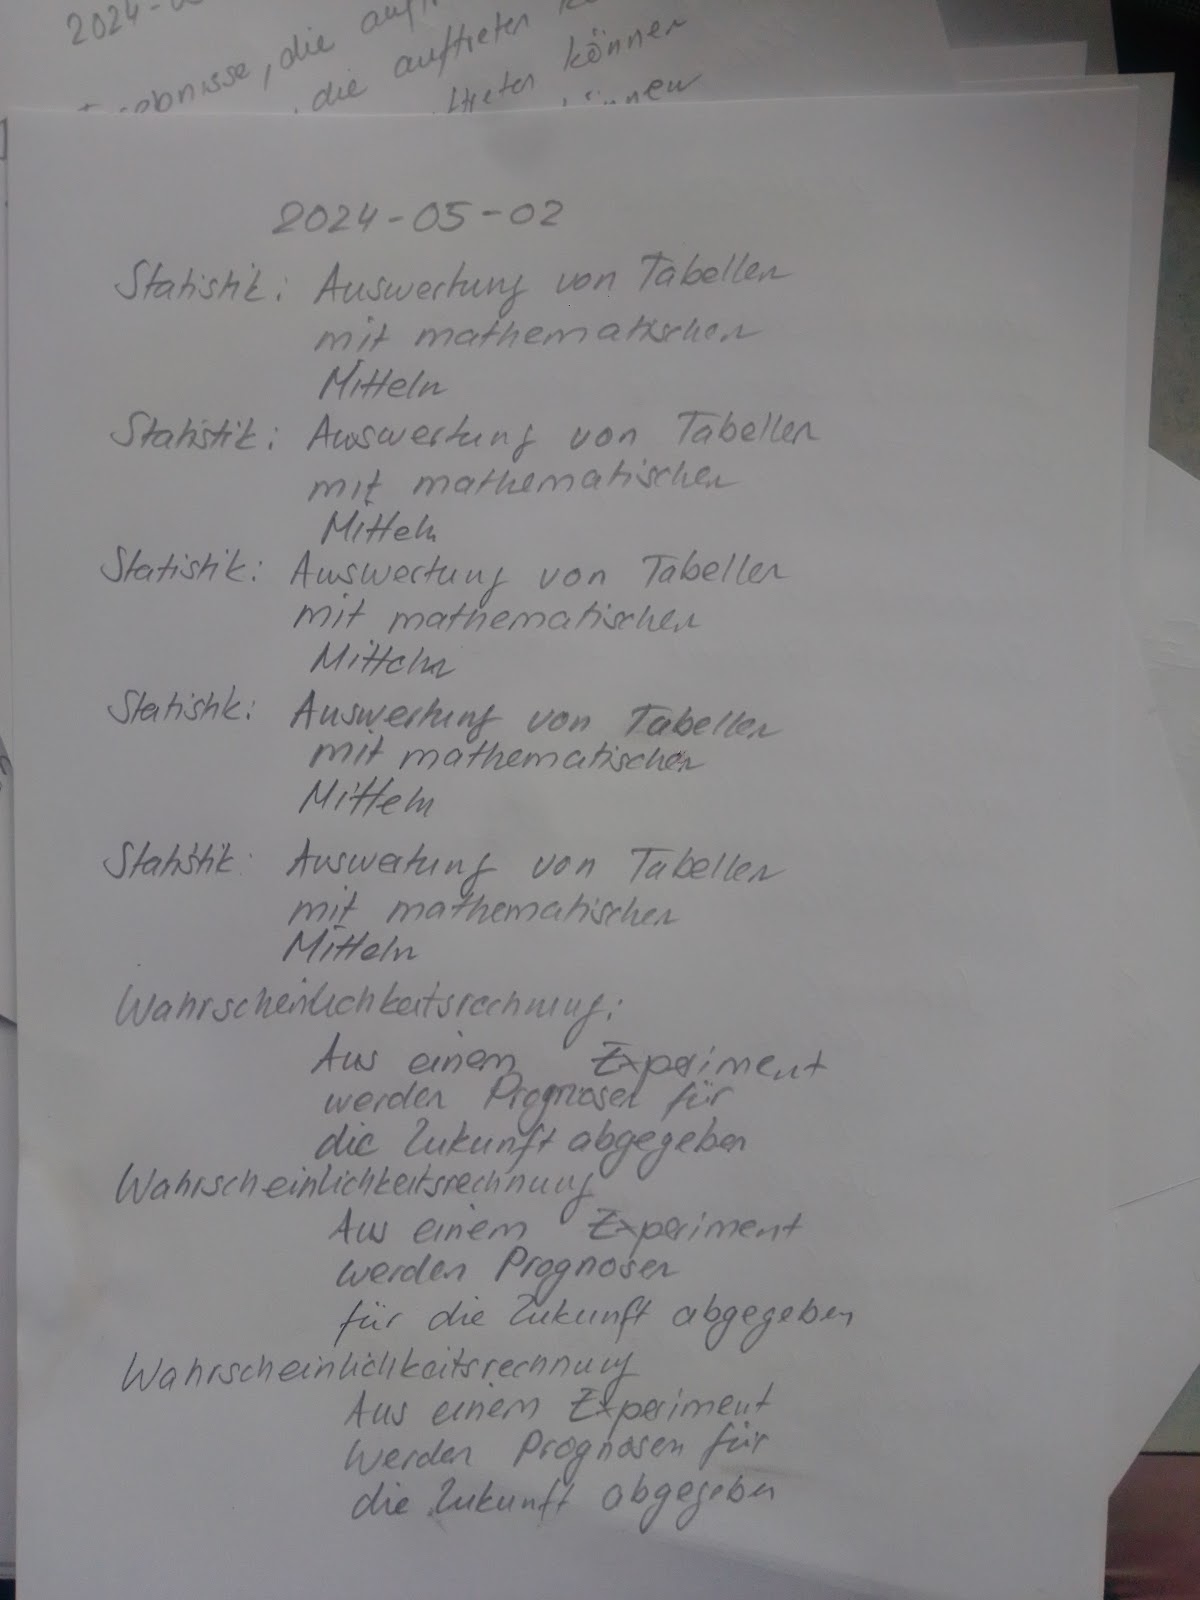 2024-0
Ergebnisse, die auftr
die auftreten k
ftreten können
können
2024-05-02
Statistik: Auswertung von Tabellen
mit mathematischen
Mitteln
Statistik: Auswertung von Tabellen
mit mathematischen
Mitteln
Statistik: Auswertung von Tabellen
mit mathematischen
Mitteln
Statistik: Auswertung von Tabellen
mit mathematischen
Mitteln
Statistik: Auswertung von Tabellen
mit mathematischen
Mitteln
Wahrscheinlichkeitsrechnung:
Aus einem Experiment
werden Prognosen für
die Zukunft abgegeben
Wahrscheinlichkeitsrechnung
Aus einem Experiment
werden Prognosen
für die Zukunft abgegeben
Wahrscheinlichkeitsrechnung
Aus einem Experiment
werden Prognosen für
die Zukunft abgegeben